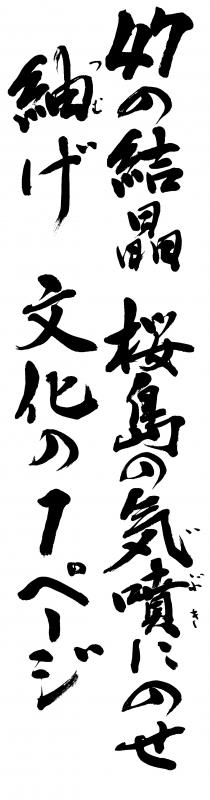 47の結晶　桜島の気噴にのせ
紬げ　文化の1ページ